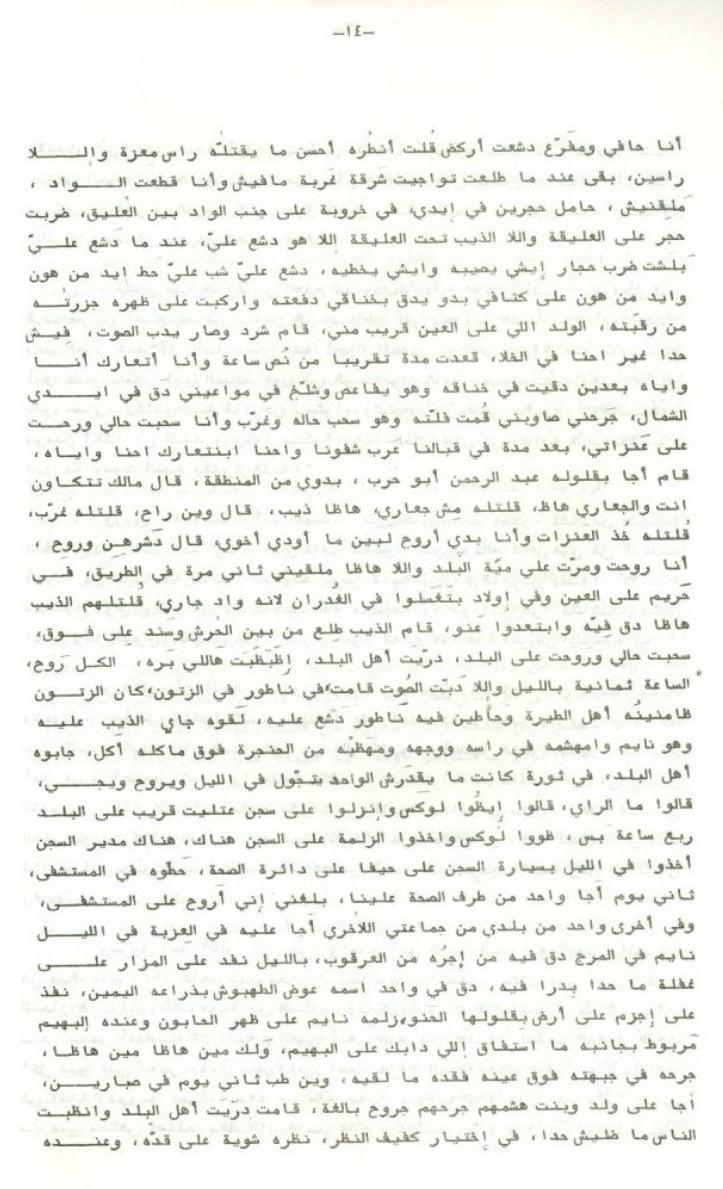 -١٤-
أنا حافي ومفرّع دشعت أركض قُلت أنطُره أحسن ما يقتلّه راس معزة وإلــلا
راسين، بقى عند ما طلعت تواجيت شرقة غربة مافيش وأنا قطعت الـــواد ،
ملقنيش ، حامل حجرين في إيدي، في خروبة على جنب الواد بين العليق، ضربت
حجر على العليقة واللا الذيب تحت العليقة اللا هو دشع عليّ، عند ما دشع علــيّ
بلشت ضرب حجار إيشي يصيبه وايشي يخطيه، دشع عليّ شب عليّ حط ايد من هون
وايد من هون على كتافي بدو يدق بخناقي دفعته واركبت على ظهره جزرتـــه
من رقبته، الولد اللي على العين قريب مني، قام شرد وصار يدب الصوت، فيــش
حدا غير احنا في الخلا، قعدت مدة تقريبا من نُص ساعة وأنا أتعارك أنـــا
واياه بعدين دقيت في خناقه وهو يفاعص وشلّخ في مواعيني دق في ايـــدي
الشمال، جَرحني صاوبني قُمت فلتّه وهو سحب حاله وغرّب وأنا سحبت حالي ورحـت
على عَنزاتي، بعد مدة في قبالنا عَرب شفونا واحنا ابنتعارك احنا وايـــاه،
قام أجا بقلوله عبد الرحمن أبو حرب ، بدوي من المنطقة، قال مالك تتكـاون
انت والجعاري هاظ، قلتله مِش جعاري، هاظا ذيب، قال وين راح، قلتله غرّب،
قُلتله خُذ العنزات وأنا بدي أروح لبين ما أودي أخوي، قال دشرهـن وروح ،
أنا روحت ومرّت على ميّة البلد واللا هاظا ملقيني ثاني مرة في الطريق، فـــي
حَريم على العين وفي إولاد بتغسلوا في الغُدران لانه واد جاري، قُلتلهم الذيب
هاظا دق فيّه وابتعدوا عنو، قام الذيب طلع من بين الحُرش وسَند على فــوق،
سحبت حالي وروحت على البلد، درّيت أهل البلد، إظبظبَت هاللي بَره، الكـل رَوح،
الساعة ثمانية بالليل واللا دَبّت الصُوت قامت، في ناطور في الزتون، كان الزتـون
ظامنينُه أهل الطيرة وحاطين فيه ناطور دَشع عليه، لقوه جاي الذيب عليـه
وهو نايم وامهشمه في راسه ووجهه ومهظبُه من الحنجرة فوق ماكله أكل، جابوه
أهل البلد، في ثورة كانت ما يقدرش الواحد يتجّول في الليل ويروح ويجـــي،
قالوا ما الراي، قالوا إيظُوا لوكس وانزلوا على سجن عتليت قريب على البلـد
ربع ساعة بس، ظووا لوكس واخذوا الزلمة على السجن هناك، هناك مدير السجن
أخذوا في الليل بسيارة السجن على حيفا على دائرة الصحة، حَطّوه في المستشفى،
ثاني يوم أجا واحد من طرف الصحة علينا، بلغني إني أروح على المستشفــى،
وفي أخرى واحد من بلدي من جماعتي اللاخري أجا عليه في العزبة في الليــل
نايم في المرج دق فيه من إجرُه من العرقوب، بالليل نفد على المزار علـــى
غفلة ما حدا بدرا فيه، دق في واحد اسمه عوض الطهبوش بذراعه اليمين، نفذ
على إجزم على أرض بقلولها الحنو، زلمه نايم على ظهر الحابون وعنده إلبهيم
مَربوط بجانبه ما استفاق إللي دابك على البهيم، وَلك مين هاظا مين هاظـا،
جرحه في جبهته فوق عينه فقده ما لقيه، وين طب ثاني يوم في صباريــن،
أجا على ولد وبنت هشمهم جرحهم جروح بالغة، قامت درّيت أهل البلد وانظبت
الناس ما ظليش حدا، في إختيار كفيف النظر، نظره شوية على قدّه، وعنــده